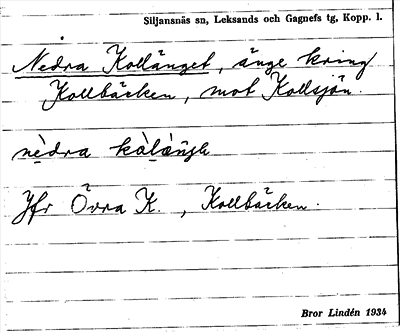 Siljansnäs sn, Leksands och Gagnefs tg, Kopp. l.
Nedra Kollänget, änge kring
Kollbäcken, mot Kollsjön.
nèdra
Jfr Övra K., Kollbäcken.
Bror Lindén 1934